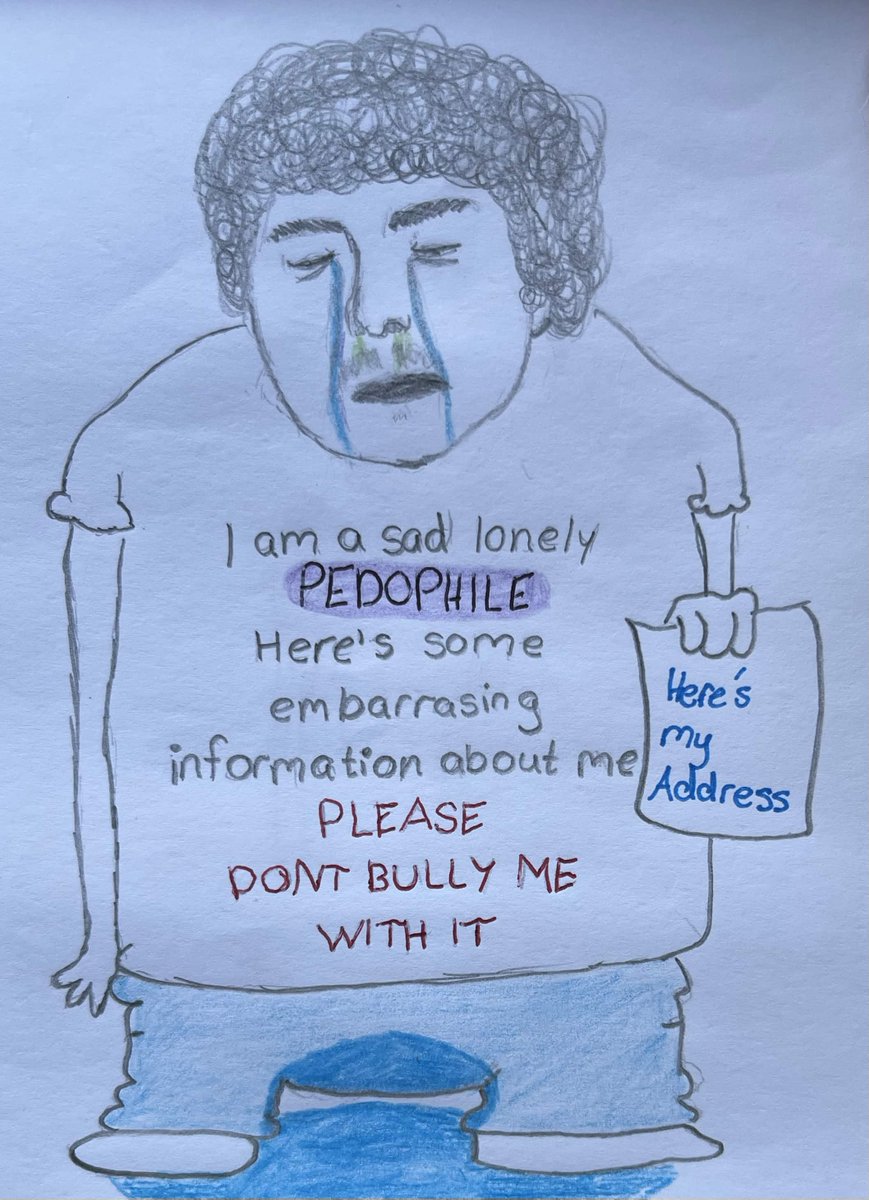 I am a sad lonely
PEDOPHILE
Here's some
embarrasing
information about me
PLEASE
DONT BULLY ME
WITH IT
Here's
my
Address